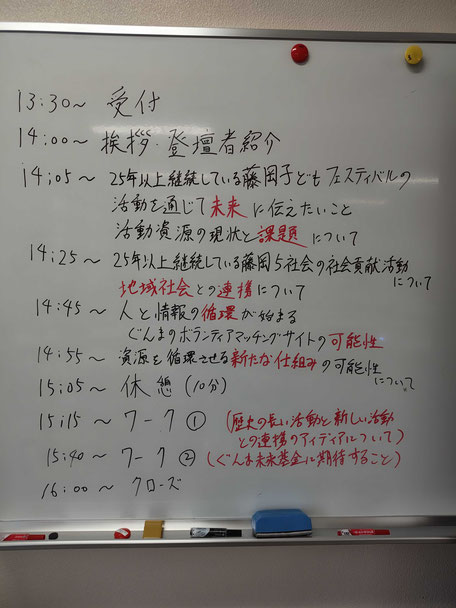 13:30~ 受付
14:00~ 挨拶・登壇者紹介
14:05~ 25年以上継続している藤岡子どもフェスティバルの
活動を通じて未来に伝えたいこと
活動資源の現状と課題について
14:25~ 25年以上継続している藤岡5社会の社会貢献活動
について
地域社会との連携について
14:45~ 人と情報の循環が始まる
ぐんまのボランティアマッチングサイトの可能性
14:55~ 資源を循環させる新たな仕組みの可能性
について
15:05~ 休憩(10分)
15:15~ ワーク① (歴史の長い活動と新しい活動
との連携のアイディアについて)
15:40~ ワーク② (ぐんま未来基金に期待すること)
16:00~ クローズ